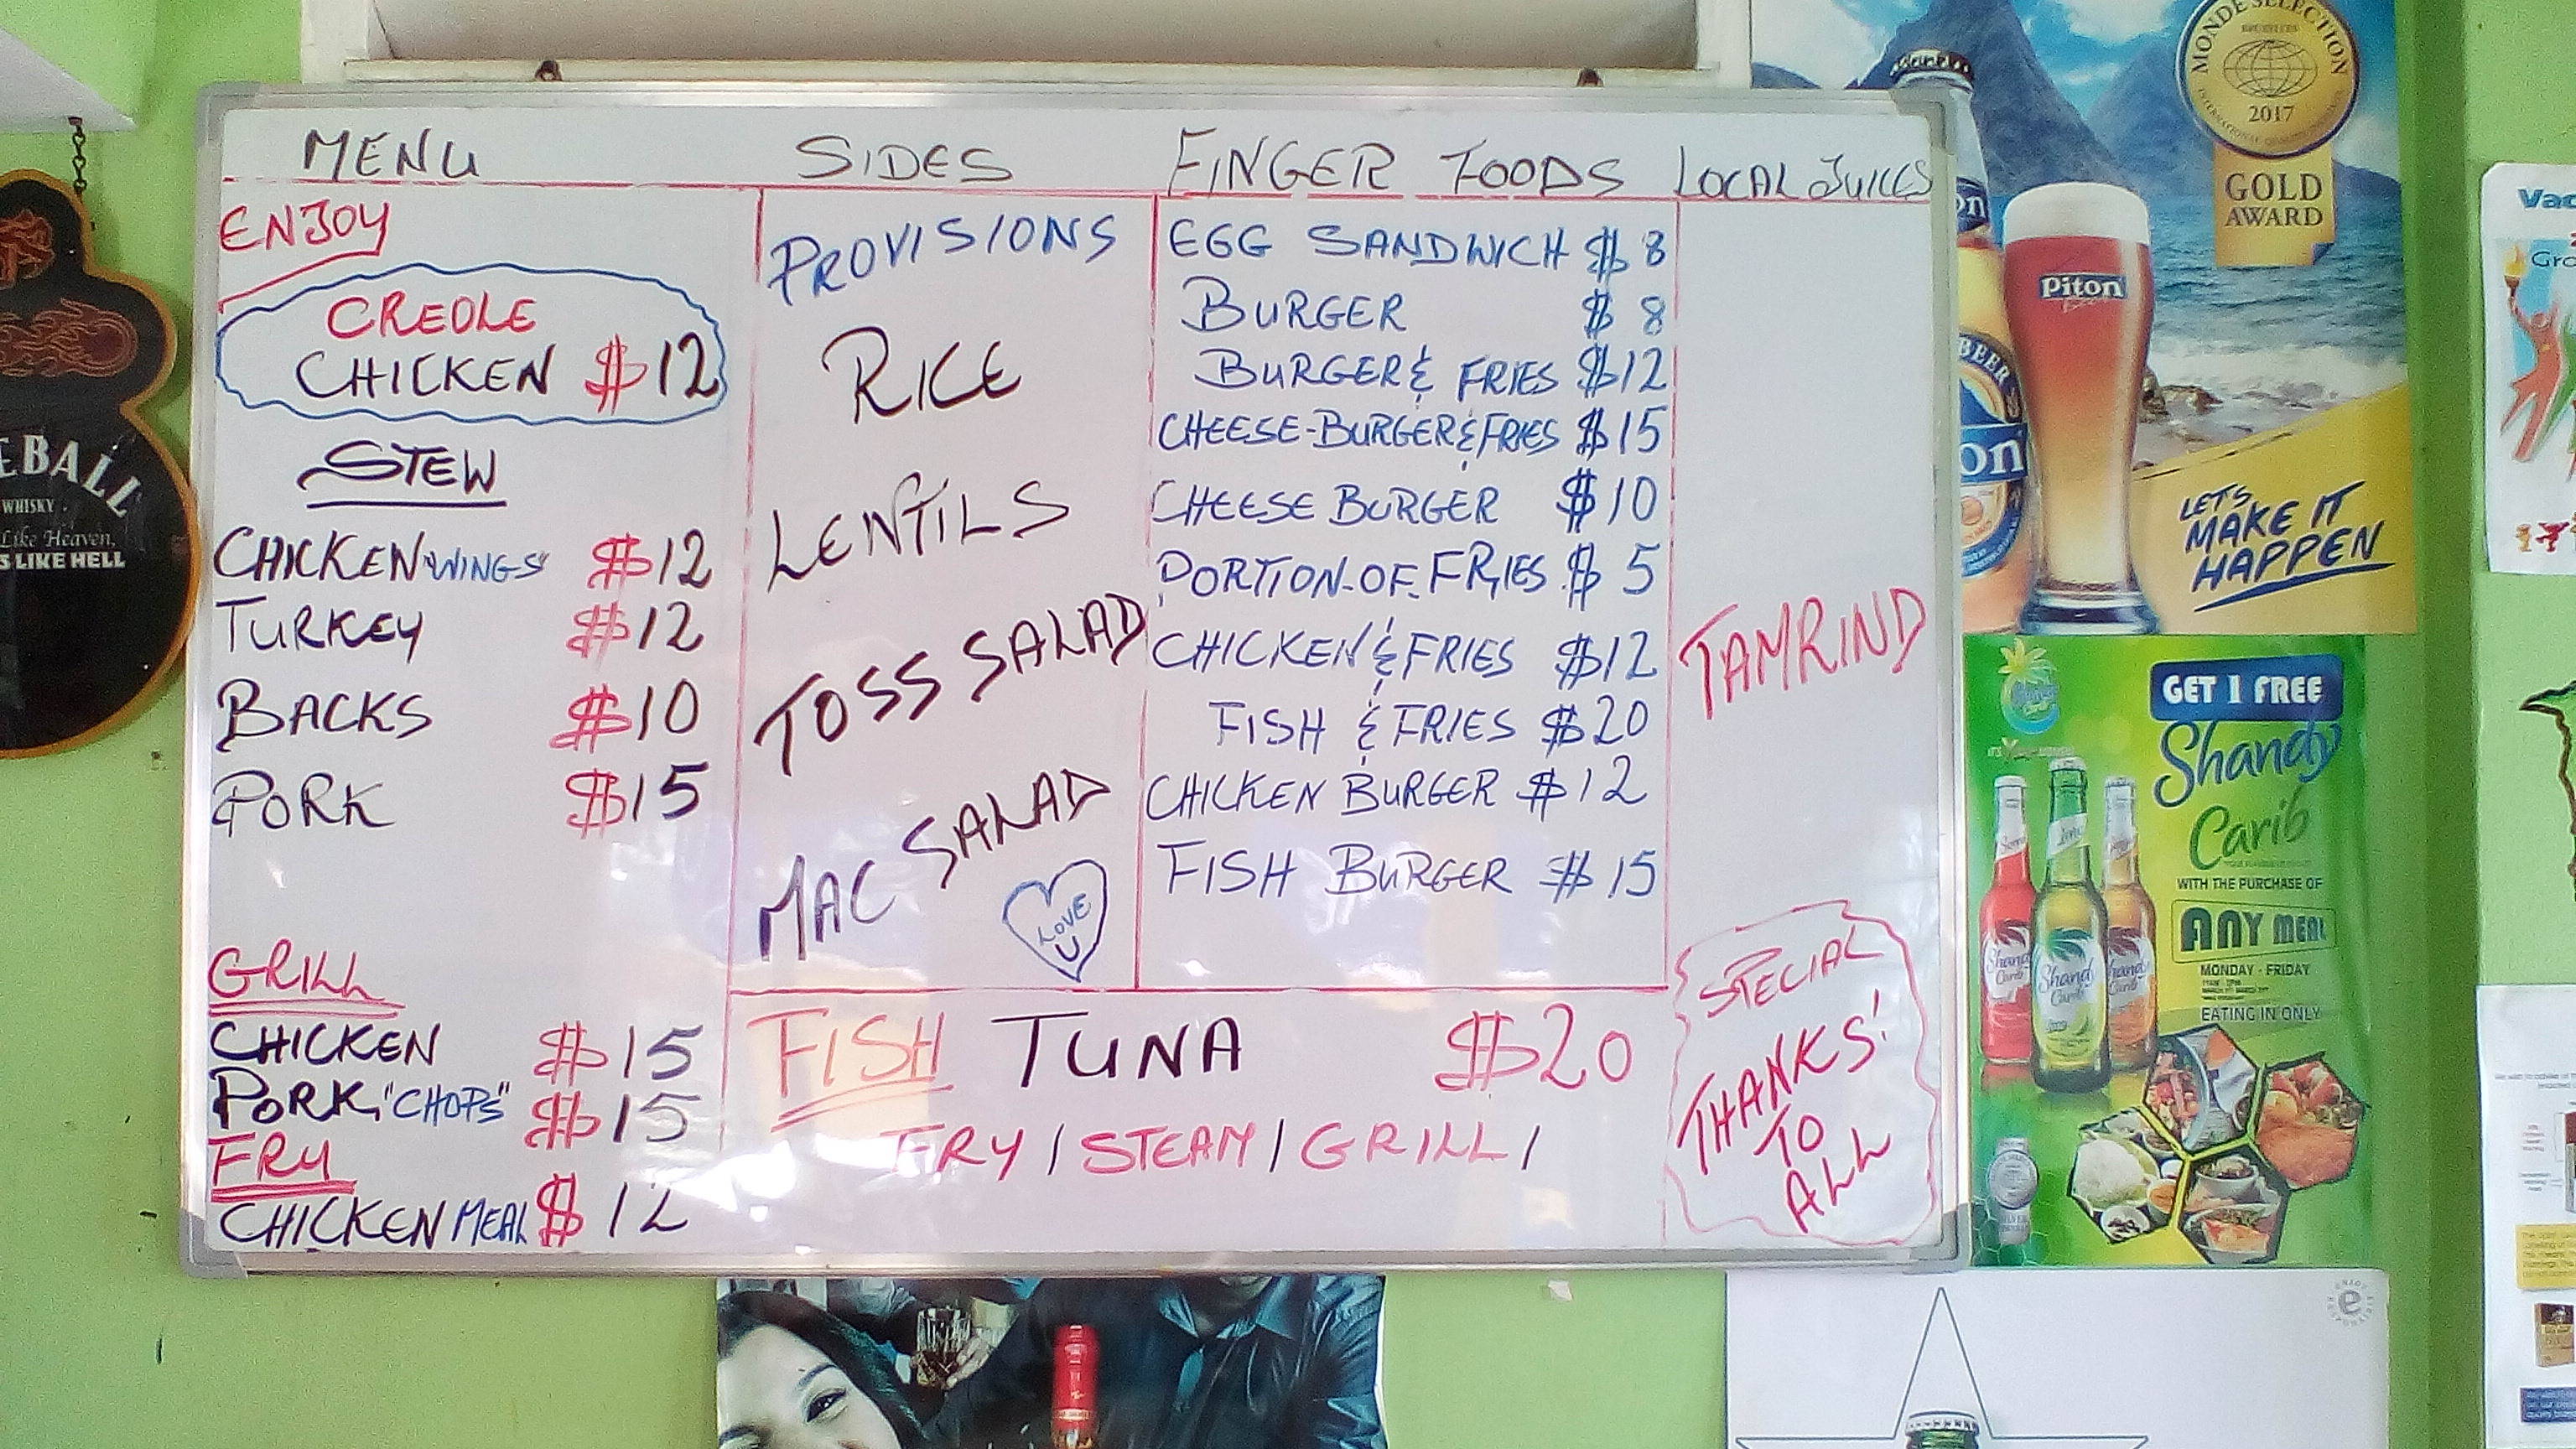 MENU
ENJOY
CREOLE
CHICKEN $12
STEW
CHICKEN "WINGS" $12
TURKEY $12
BACKS $10
PORK $15
GRILL
CHICKEN $15
PORK "CHOPS" $15
FRY
CHICKEN MEAL $12
SIDES
PROVISIONS
RICE
LENTILS
TOSS SALAD
MAC SALAD
LOVE
U
FINGER FOODS
EGG SANDWICH $8
BURGER $8
BURGER & FRIES $12
CHEESE-BURGER & FRIES $15
CHEESE BURGER $10
PORTION-OF-FRIES $5
CHICKEN & FRIES $12
FISH & FRIES $20
CHICKEN BURGER $12
FISH BURGER $15
LOCAL JUICES
TAMRIND
FISH TUNA $20
FRY / STEAM / GRILL /
SPECIAL
THANKS!
TO
ALL
EBALL
WHISKY
Like Heaven,
S LIKE HELL
MONDE SELECTION
BRUXELLES
2017
GOLD
AWARD
Piton
BEER
on
LET'S
MAKE IT
HAPPEN
GET 1 FREE
Shandy
Carib
WITH THE PURCHASE OF
ANY MEAL
MONDAY - FRIDAY
EATING IN ONLY
Shandy
Carib
Vac
Gro